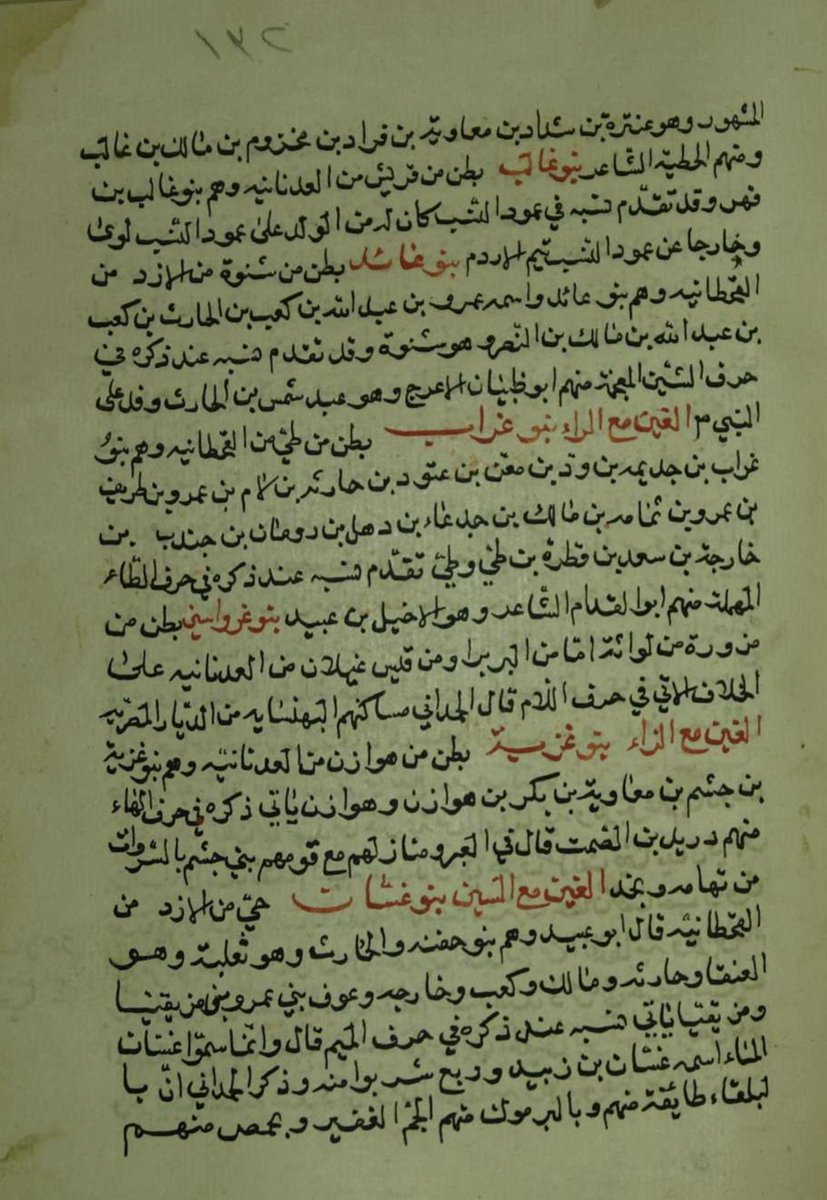 ١٣٢
المشهور وهو عنترة بن شداد بن معاوية بن قراد بن مخزوم بن مالك بن غالب
ومنهم الحطية الشاعر بنو غالب بطن من قريش من العدنانيه وهم بنو غالب بن
فهر وقد تقدّم نسبه في عمود النسب كان له من الولد على عمود النسب لوى
وخارجا عن عمود النسب تيم الادرم بنو غامد بطن من شنوة من الازد من
القحطانيه وهم بنو عائد واسمه عمرو بن عبد الله بن كعب بن الحارث بن كعب
بن عبد الله بن مالك بن النصر وهو شنوة وقد تقدم نسبه عند ذكره في
حرف الشين المعجمة منهم ابو ظبيان الاعرج وهو عبد شمس بن الحارث وفد على
النبي الغين مع الراء بنو غراب بطن من طي من القحطانيه وهم بنو
غراب بن جديمه بن ود بن معن بن عتود بن حارثه بن لام بن عمرو بن طريف
بن عمرو بن ثمامه بن مالك بن جدعاء بن دهل بن رومان بن جندب بن
خارجة بن سعد بن قطرة بن طي وطي تقدّم نسبه عند ذكره في حرف الطاء
المهملة منهم ابو القدام الشاعر وهو الاخيل بن عبيد بنو غرواسن بطن من
مزورة من لواتة اما من البربر او من قيس غيلان من العدنانيه على
الخلاف الاتي في حرف اللام قال الحمداني مساكنهم البهنسايه من الديار المصريه
الغين مع الزاء بنو غزية بطن من هوازن من العدنانيه وهم بنو غزية
بن جشم بن معاوية بن بكر بن هوازن وهوازن ياتي ذكره في حرف الهاء
منهم دريد بن الصمت قال في العبر ومنازلهم مع قومهم بني جشم بالسروات
من تهامه ونجد الغين مع السين بنو غسّان حي من الازد من
القحطانيه قال ابو عبيد وهم بنو جفنه والحارث وهو ثعلبة وهو
العنقا وحارثه ومالك وكعب وخارجه وعوف بني عمرو بن مزيقيا
ومزيقيا ياتي نسبه عند ذكره في حرف الميم قال وانما سموا غسان
الماء اسمه غسّان بن زبيد وربع شربوا منه وذكر الحمداني انّ با
لبلقاء طائفة منهم وباليرموك منهم الجم الغفير وبحمص منهم